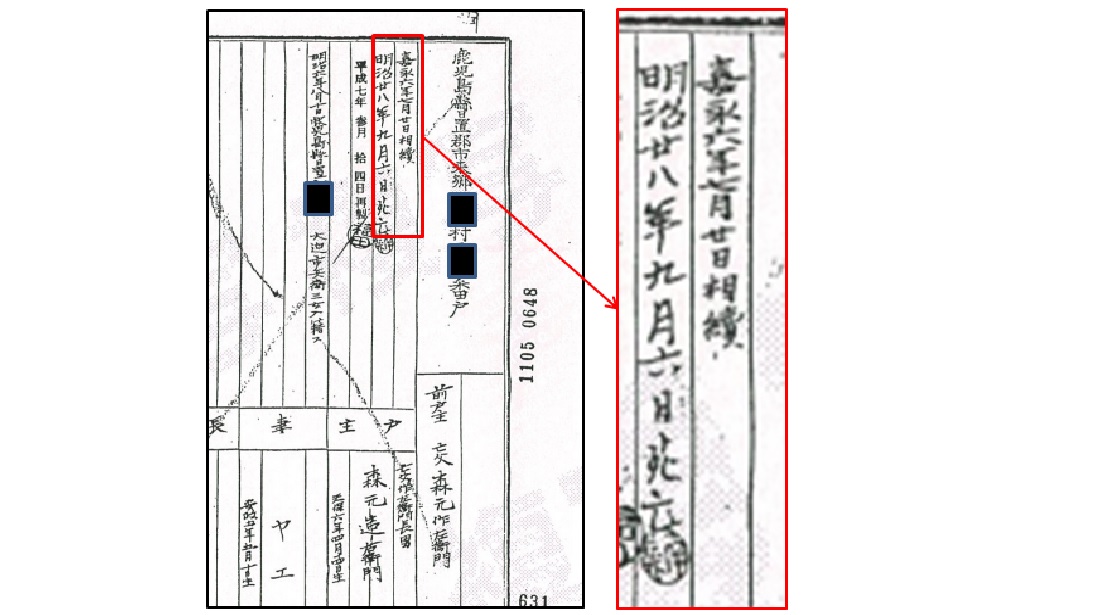 鹿児島縣日置郡市来郷
村
番戸
嘉永六年七月廿日相續
明治廿八年九月六日死亡
平成七年参月拾四日再製
大迫市兵衛三女入籍ス
前戸主 亡父 森元作左衛門
戸主
亡父作左衛門長男
森元造右衛門
天保六年四月四日生
妻
ヤエ
長
1105 0648
631
嘉永六年七月廿日相續
明治廿八年九月六日死亡